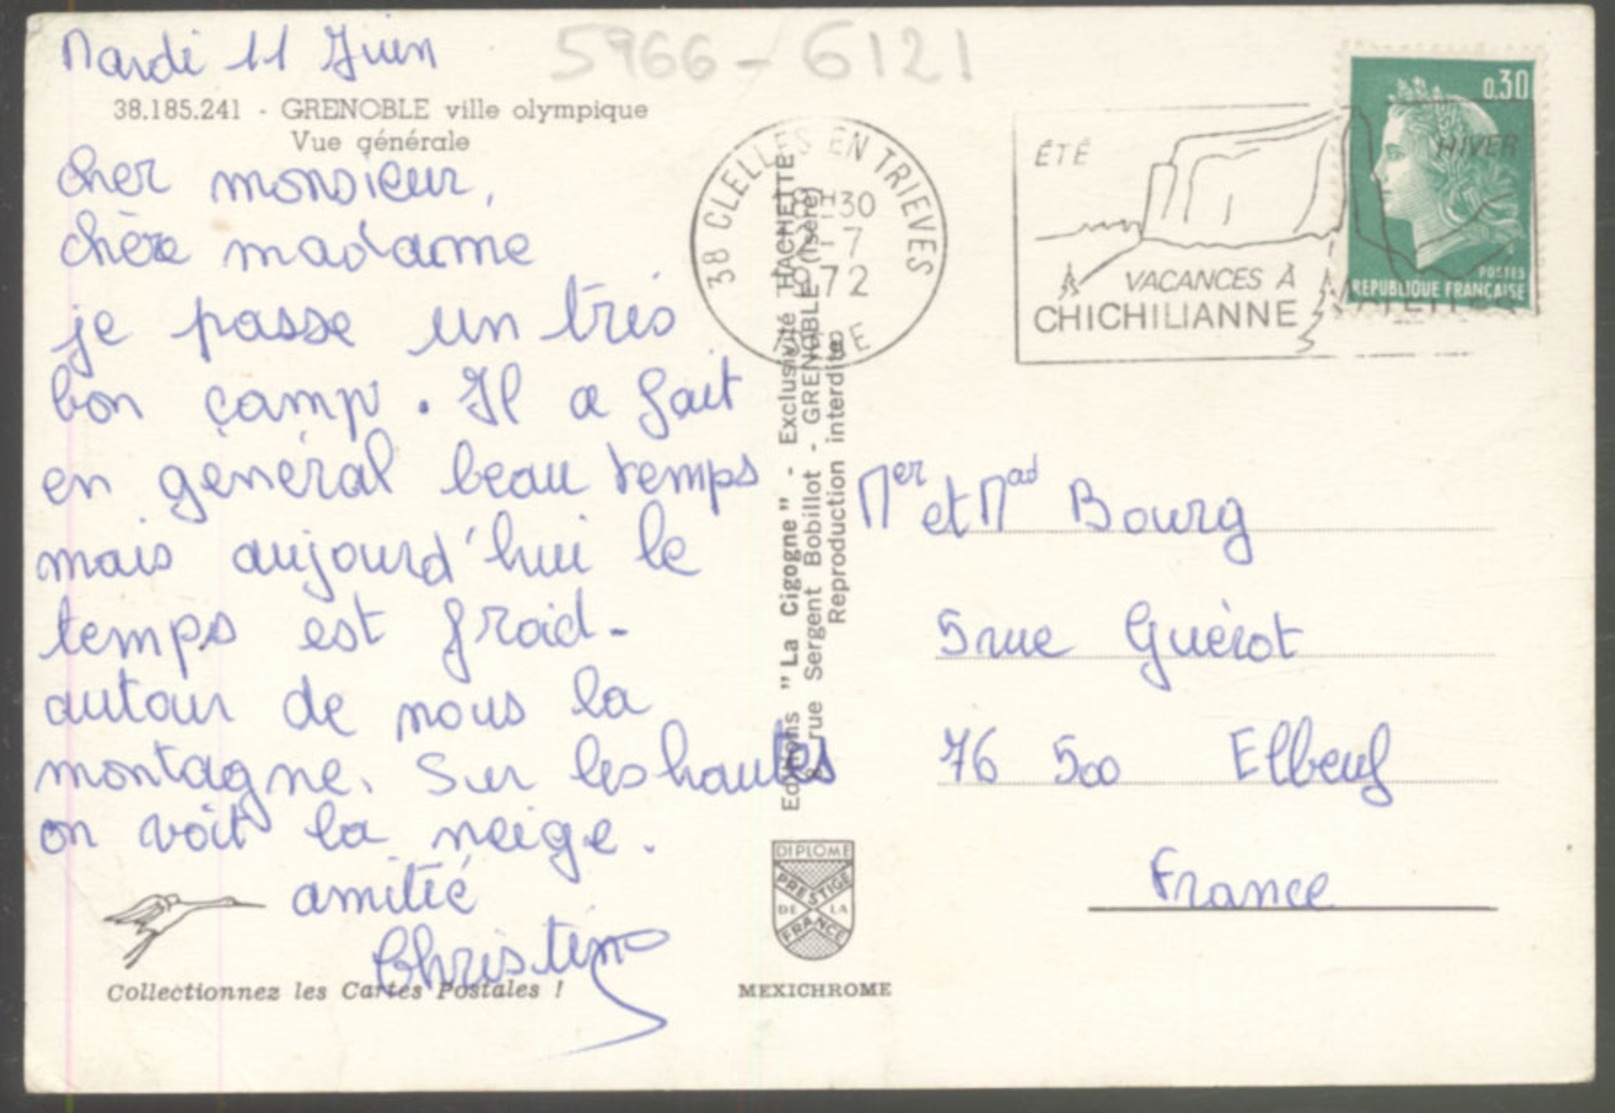 Mardi 11 Juin
5966-6121
38.185.241 - GRENOBLE ville olympique
Vue générale
cher monsieur,
chère madame
je passe un très
bon camp. Il a fait
en général beau temps
mais aujourd'hui le
temps est froid-
autour de nous la
montagne. Sur les hautes
on voit la neige.
amitié
Christine
Collectionnez les Cartes Postales !
38 CLELLES EN TRIEVES
18H30
2-7
1972
ISERE
ÉTÉ
HIVER
VACANCES À
CHICHILIANNE
0.30
POSTES
REPUBLIQUE FRANÇAISE
Editions "La Cigogne" - Exclusivité HACHETTE
8, rue Sergent Bobillot - GRENOBLE (Isère)
Reproduction interdite
Mer et Mad Bourg
5 rue Guérot
76 500 Elbeuf
France
DIPLOME
PRESTIGE
DE LA
FRANCE
MEXICHROME